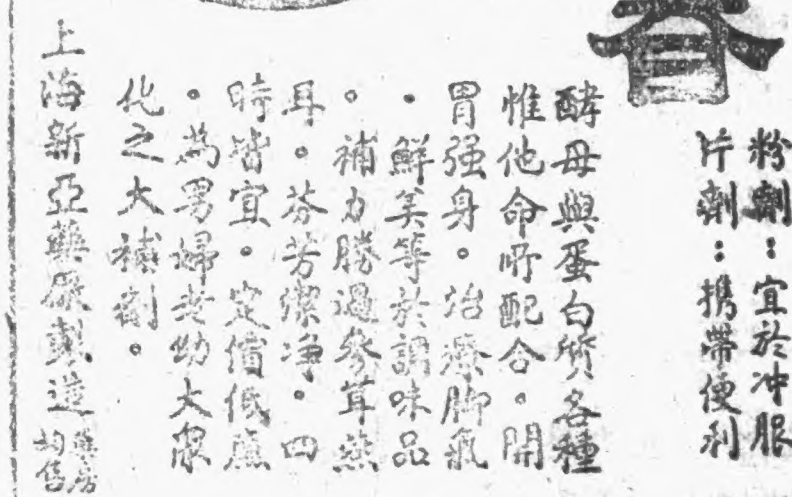 春
粉劑：宜於冲服
片劑：携帶便利
酵母與蛋白質各種
惟他命所配合。開
胃强身。治療脚氣
。鮮美等於調味品
。補力勝過參茸燕
耳。芬芳潔净。四
時皆宜。定價低廉
。為男婦老幼大眾
化之大補劑。
上海新亞藥厰製造
藥房
均售